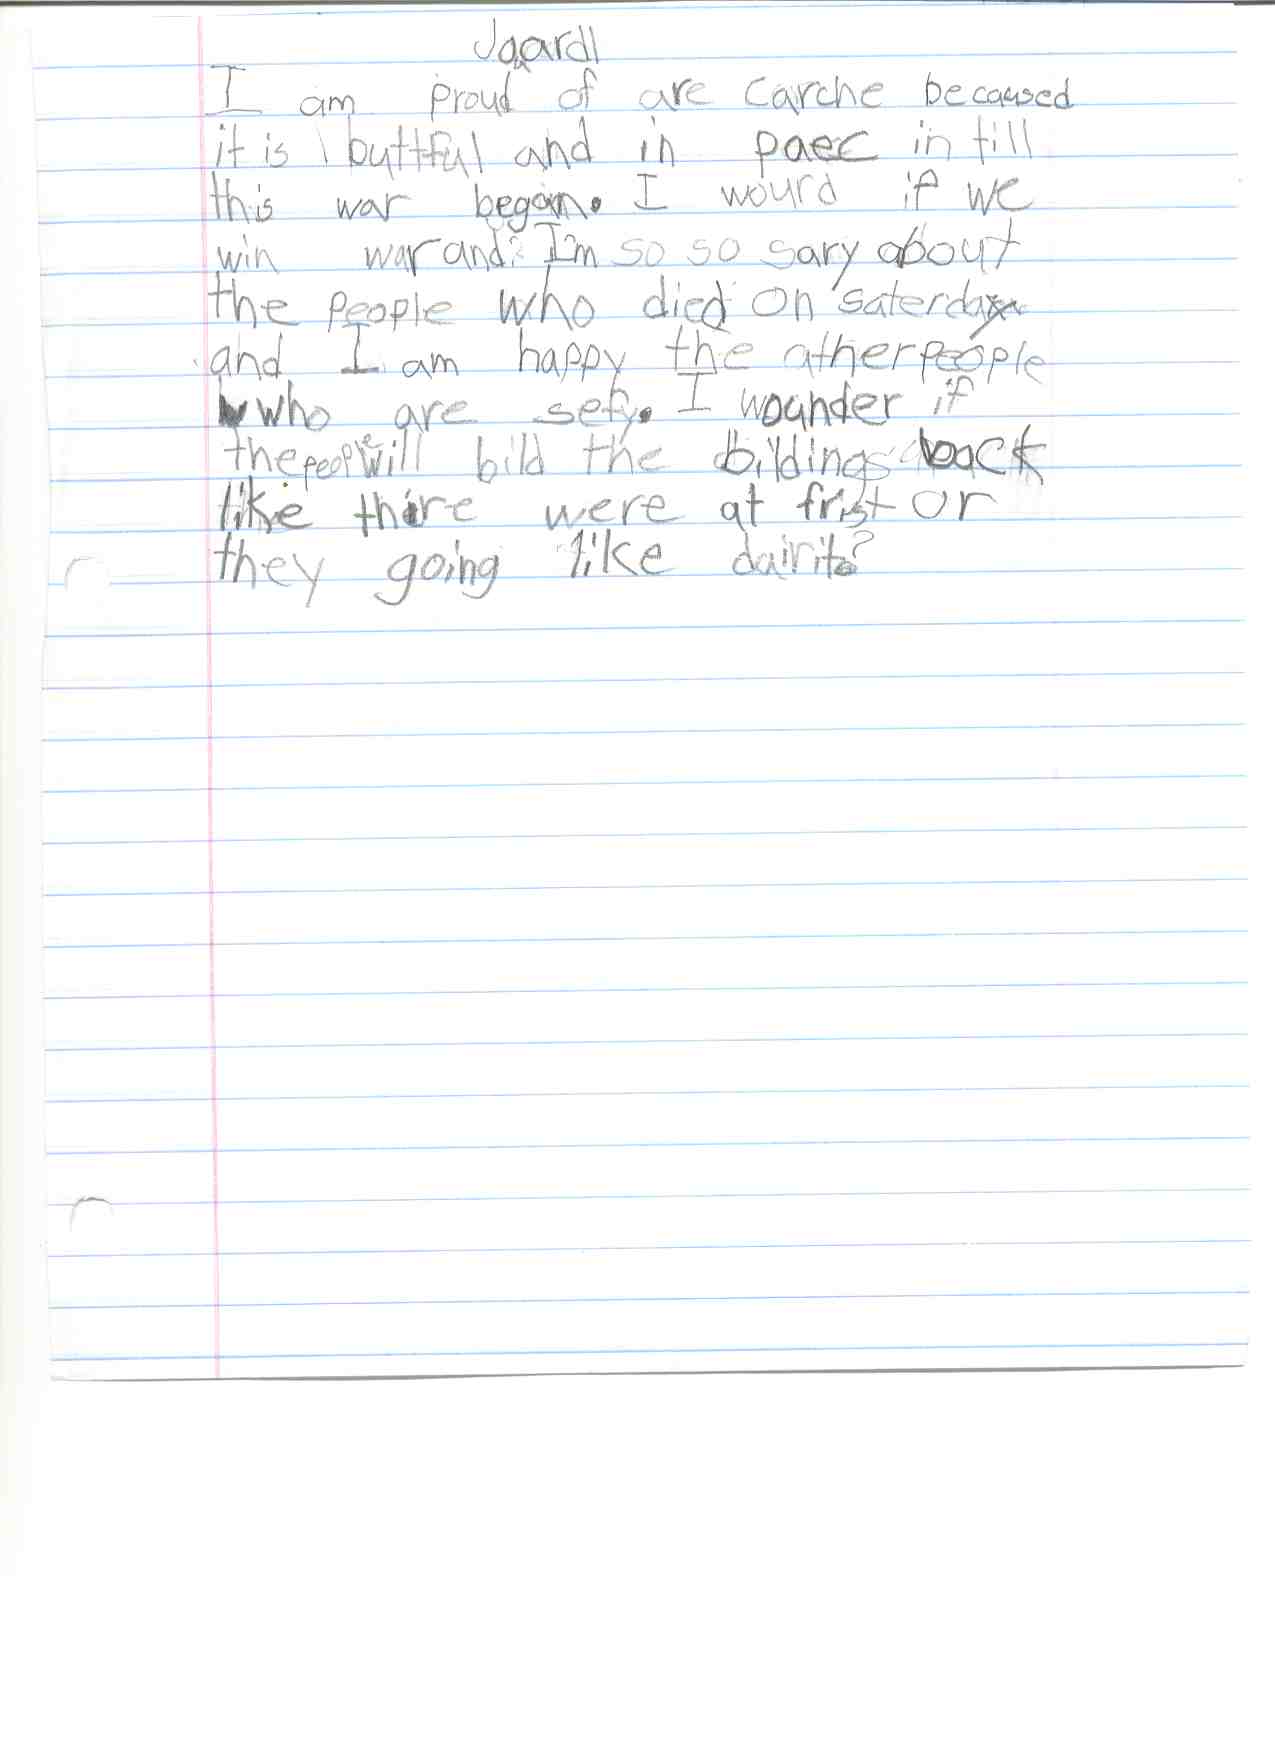 I am proud of are carche becaused
it is buttful and in paec in till
this war began. I wourd if we
win war and? I'm so so sary about
the people who died on saterday
and I am happy the ather people
who are sefy. I wounder if
the people will bild the bildings back
like there were at frist or
they going like dairit?